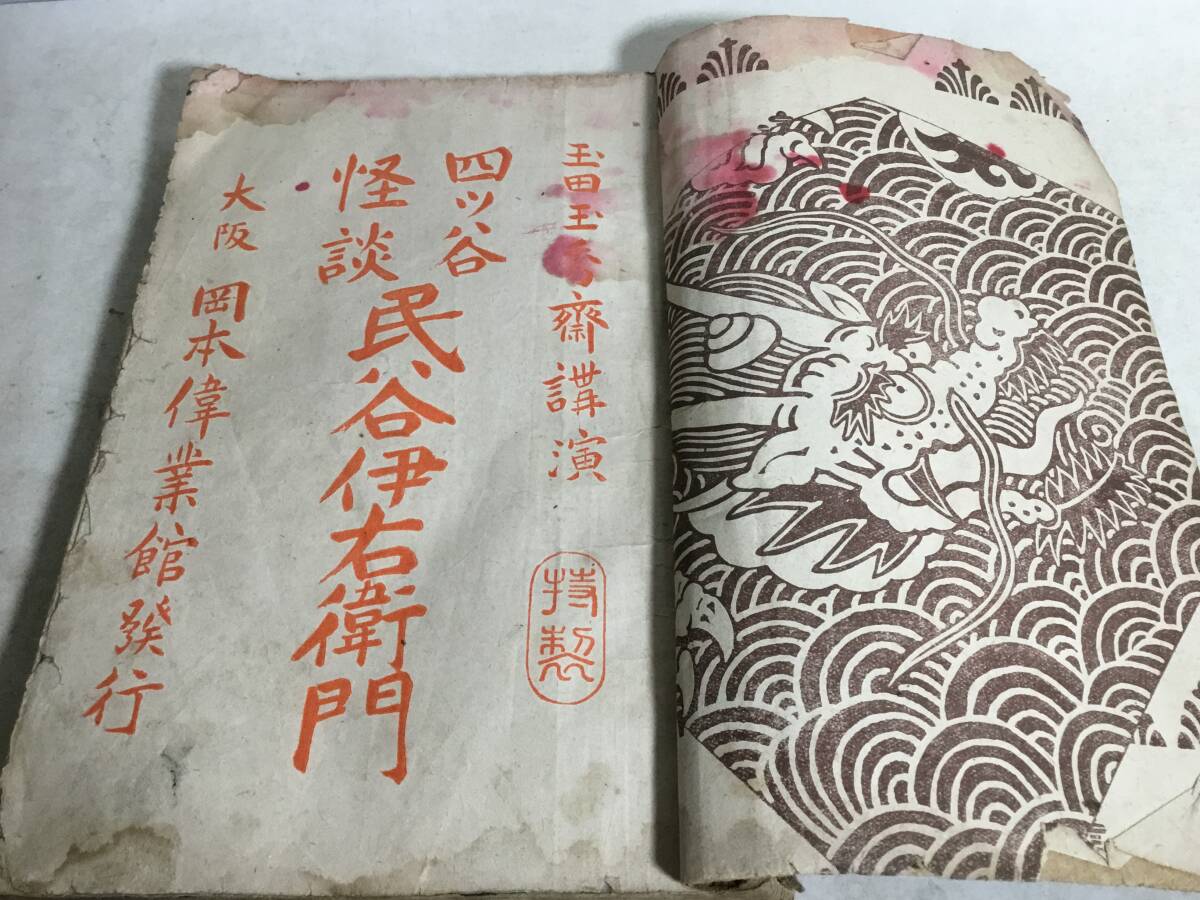 玉田玉秀齋講演
特製
四ツ谷
怪談
民谷伊右衛門
大阪
岡本偉業館發行